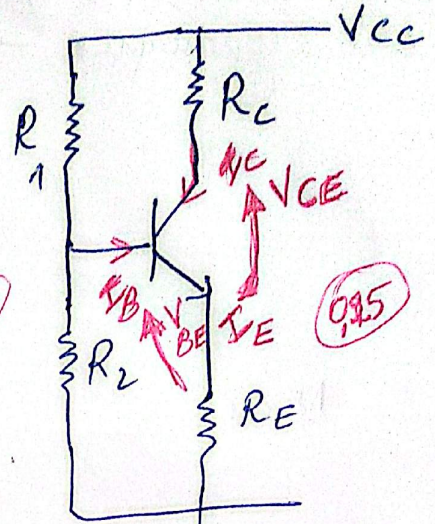 Vcc
R1
RC
IC
VCE
IB
VBE
IE
R2
RE